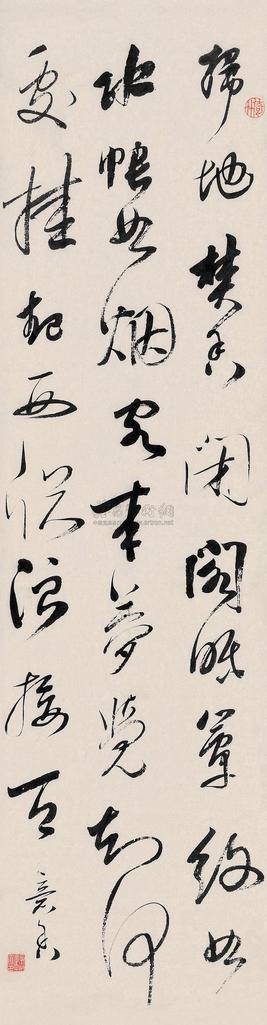 掃地焚香閉閣眠簟紋如
水帳如烟客來夢覺知何
處挂起西窗浪接天